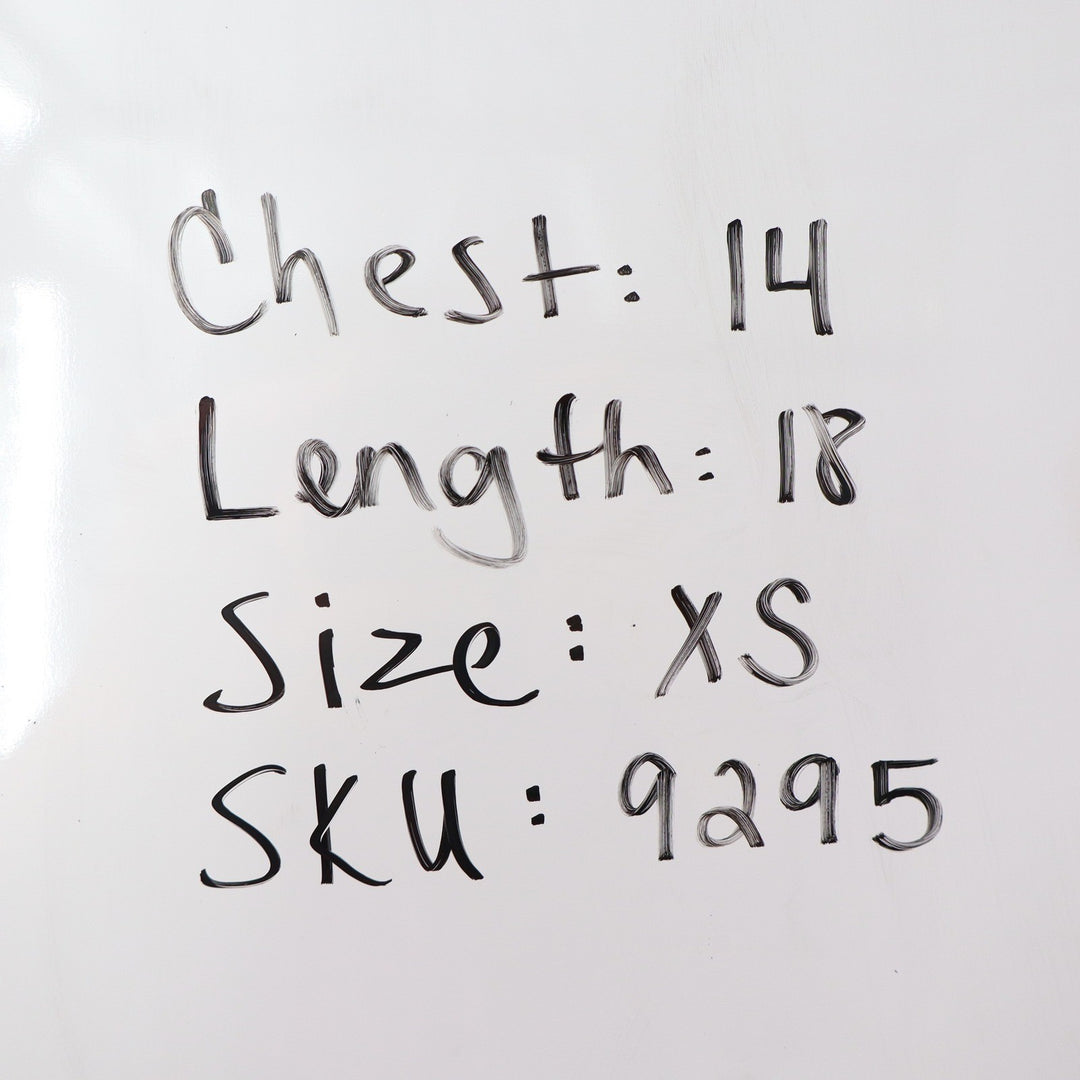 Chest: 14
Length: 18
Size: XS
SKU: 9295